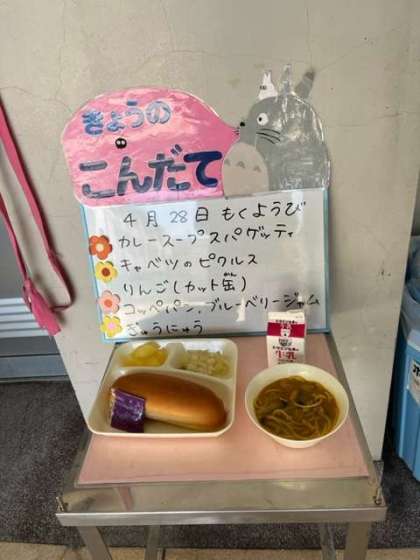 きょうの
こんだて
4月28日もくようび
カレースープスパゲッティ
キャベツのピクルス
りんご(カット缶)
コッペパン.ブルーベリージャム
ぎゅうにゅう
牛乳